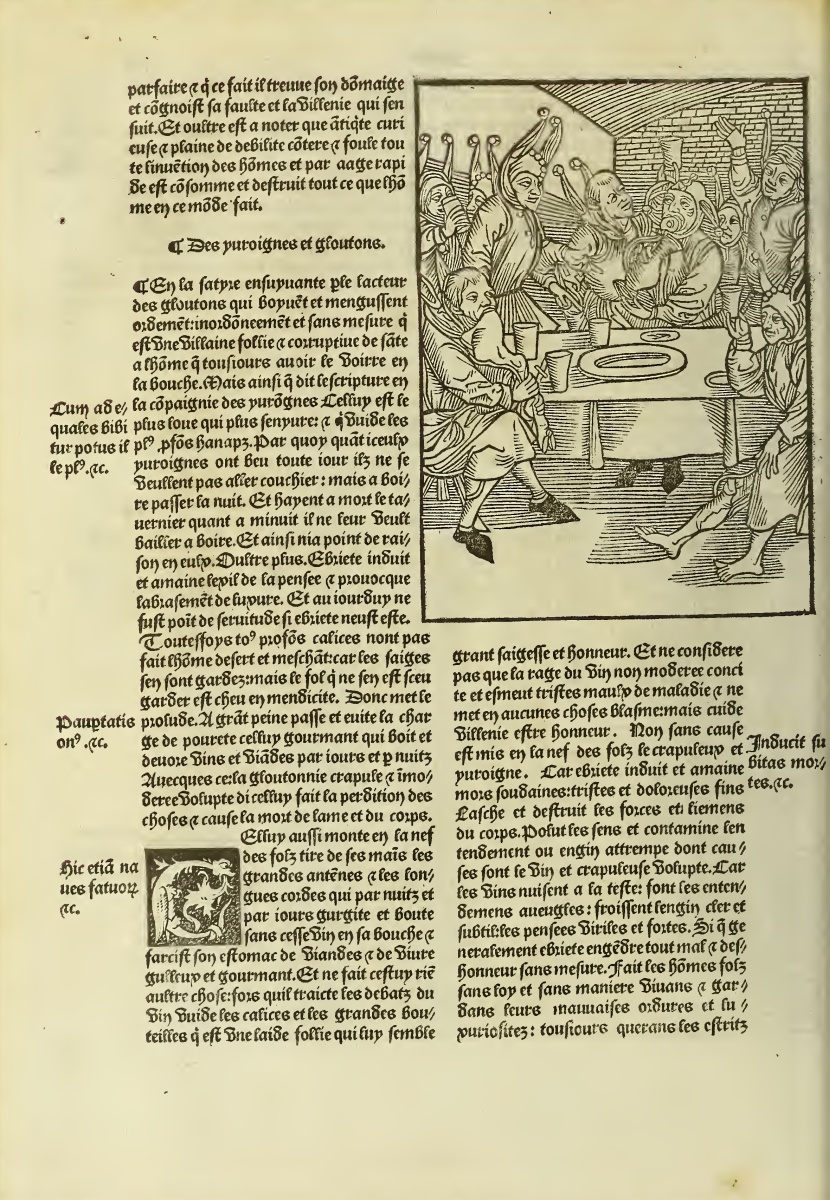 parfaire ⁊ q̃ ce fait il treuue son dõmaige
et cõgnoist sa faulte et la villenie qui sen
suit. Et oultre est a noter que ãtiq̃te curi
euse ⁊ plaine de debilite cõtere ⁊ foule tou
te linuẽtion des hõmes et par aage rapi
de est cõsomme et destruit tout ce que lhõ
me en ce mõde fait.
¶ Des yuroignes et gloutons.
¶ En la satyre ensuyuante ple lacteur
des gloutons qui boyuẽt et mengussent
ordemẽt: inordõneemẽt et sans mesure q̃
est vne villaine follie ⁊ corruptiue de sãte
a lhõme q̃ tousiours auoir le voirre en
la bouche. Mais ainsi q̃ dit lescripture en
la cõpaignie des yurõgnes Celluy est le
plus loue qui plus senyure: ⁊ q̃ vuide les
plꝰ ꝓfõs hanapz. Par quoy quãt iceulx
yuroignes ont beu toute iour ilz ne se
veullent pas aller couchier: mais a boi/
re passer la nuit. Et hayent a mort le ta/
uernier quant a minuit il ne leur veult
baillier a boire. Et ainsi nia point de rai/
son en eulx. Oultre plus. Ebriete induit
et amaine lexil de la pensee ⁊ prouocque
labrasemẽt de luxure. Et au iourduy ne
fust poĩt de seruitude si ebriete neust este.
Toutesfoys toꝰ profõs calices nont pas
fait lhõme desert et meschãt: car les saiges
sen sont gardez: mais le fol q̃ ne sen est sceu
garder est cheu en mendicite. Donc met le
prosude. A grãt peine passe et euite la char
ge de pourete celluy gourmant qui boit et
deuore vins et viãdes par iours et p nuitz
Auecques ce: la gloutonnie crapule ⁊ ĩmo/
deree volupte dicelluy fait la perdition des
choses ⁊ cause la mort de lame et du corps.
Celluy aussi monte en la nef
des folz tire de ses maĩs les
grandes antẽnes ⁊ les lon/
gues cordes qui par nuitz et
par iours gurgite et boute
sans cesse vin en sa bouche ⁊
farcist son estomac de viandes ⁊ de viure
gulleux et gourmant. Et ne fait cestuy riẽ
aultre chose: fors quil traicte les debatz du
vin vuide les calices et les grandes bou/
teilles q̃ est vne laide follie qui luy semble
Cum ad e/
quales bibi
tur potus il
le plꝰ. ⁊c.
Pauptatis
onꝰ. ⁊c.
Hic etiã na
ues fatuoꝝ
⁊c.
grant saigesse et honneur. Et ne considere
pas que la rage du vin non moderee conci
te et esment tristes maulx de maladie ⁊ ne
met en aucunes choses blasme: mais cuide
villenie estre honneur. Non sans cause
est mis en la nef des folz le crapuleux et
yuroigne. Car ebriete induit et amaine
mors soudaines: tristes et doloreuses fins
Lasche et destruit les forces et liemens
du corps. Polut les sens et contamine len
tendement ou engin attrempe dont cau/
ses sont le vin et crapuleuse volupte. Car
les vins nuisent a la teste: font les enten/
demens aueugles: froissent lengin cler et
subtil: les pensees viriles et fortes. Si q̃ ge
neralement ebriete engẽdre tout mal ⁊ des/
honneur sans mesure. Fait les hõmes folz
sans loy et sans maniere viuans ⁊ gar/
dans leurs mauuaises ordures et lu/
xuriositez: tousiours querans les estritz
Inducit su
bitas mor/
tes. ⁊c.